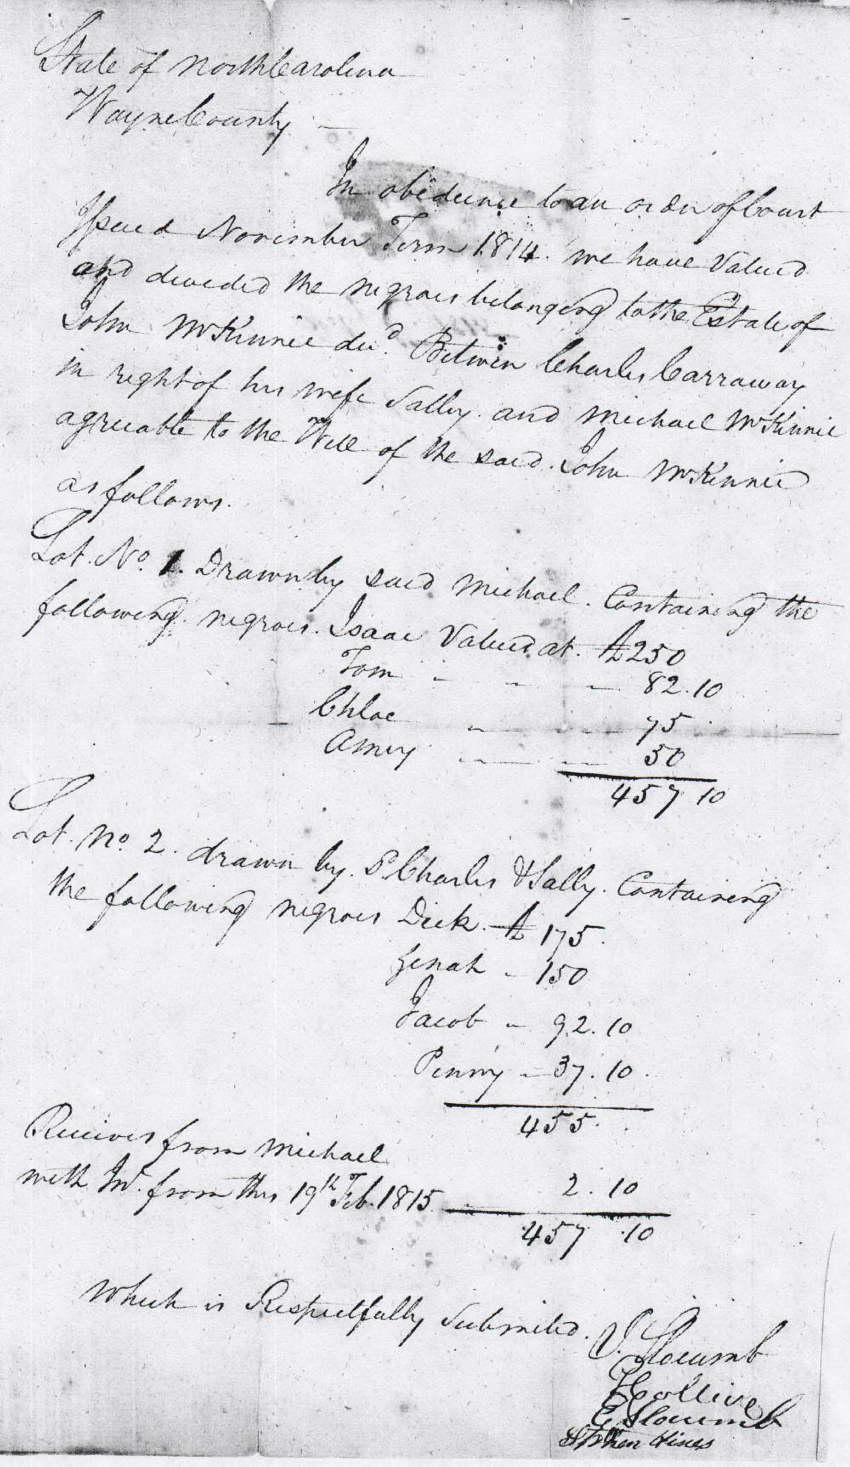 State of North Carolina
Wayne County
In obedience to an order of Court
Issued November Term 1814. we have Valued
and devided the negroes belonging to the Estate of
John McKinnie decd. Between Charles Carraway
in right of his wife Sally. and Michael McKinnie
agreeable to the Will of the said. John McKinnie
as follows.
Lot. No. 1. Drawn by said Michael. Containing the
following. negroes. Isaac Valued at. £250
Tom 82.10
Chloe 75
Amey 50
457 10
Lot. No. 2. drawn by. Sd Charles & Sally. Containing
the following negroes Dick. £175.
150
Jacob 92.10
Penny 37.10.
455.
Receives from Michael
with Int. from this 19th Feb. 1815 2.10
457.10
Which is Respectfully Submited.
Slocumb
E Slocumb
Stephen Hines